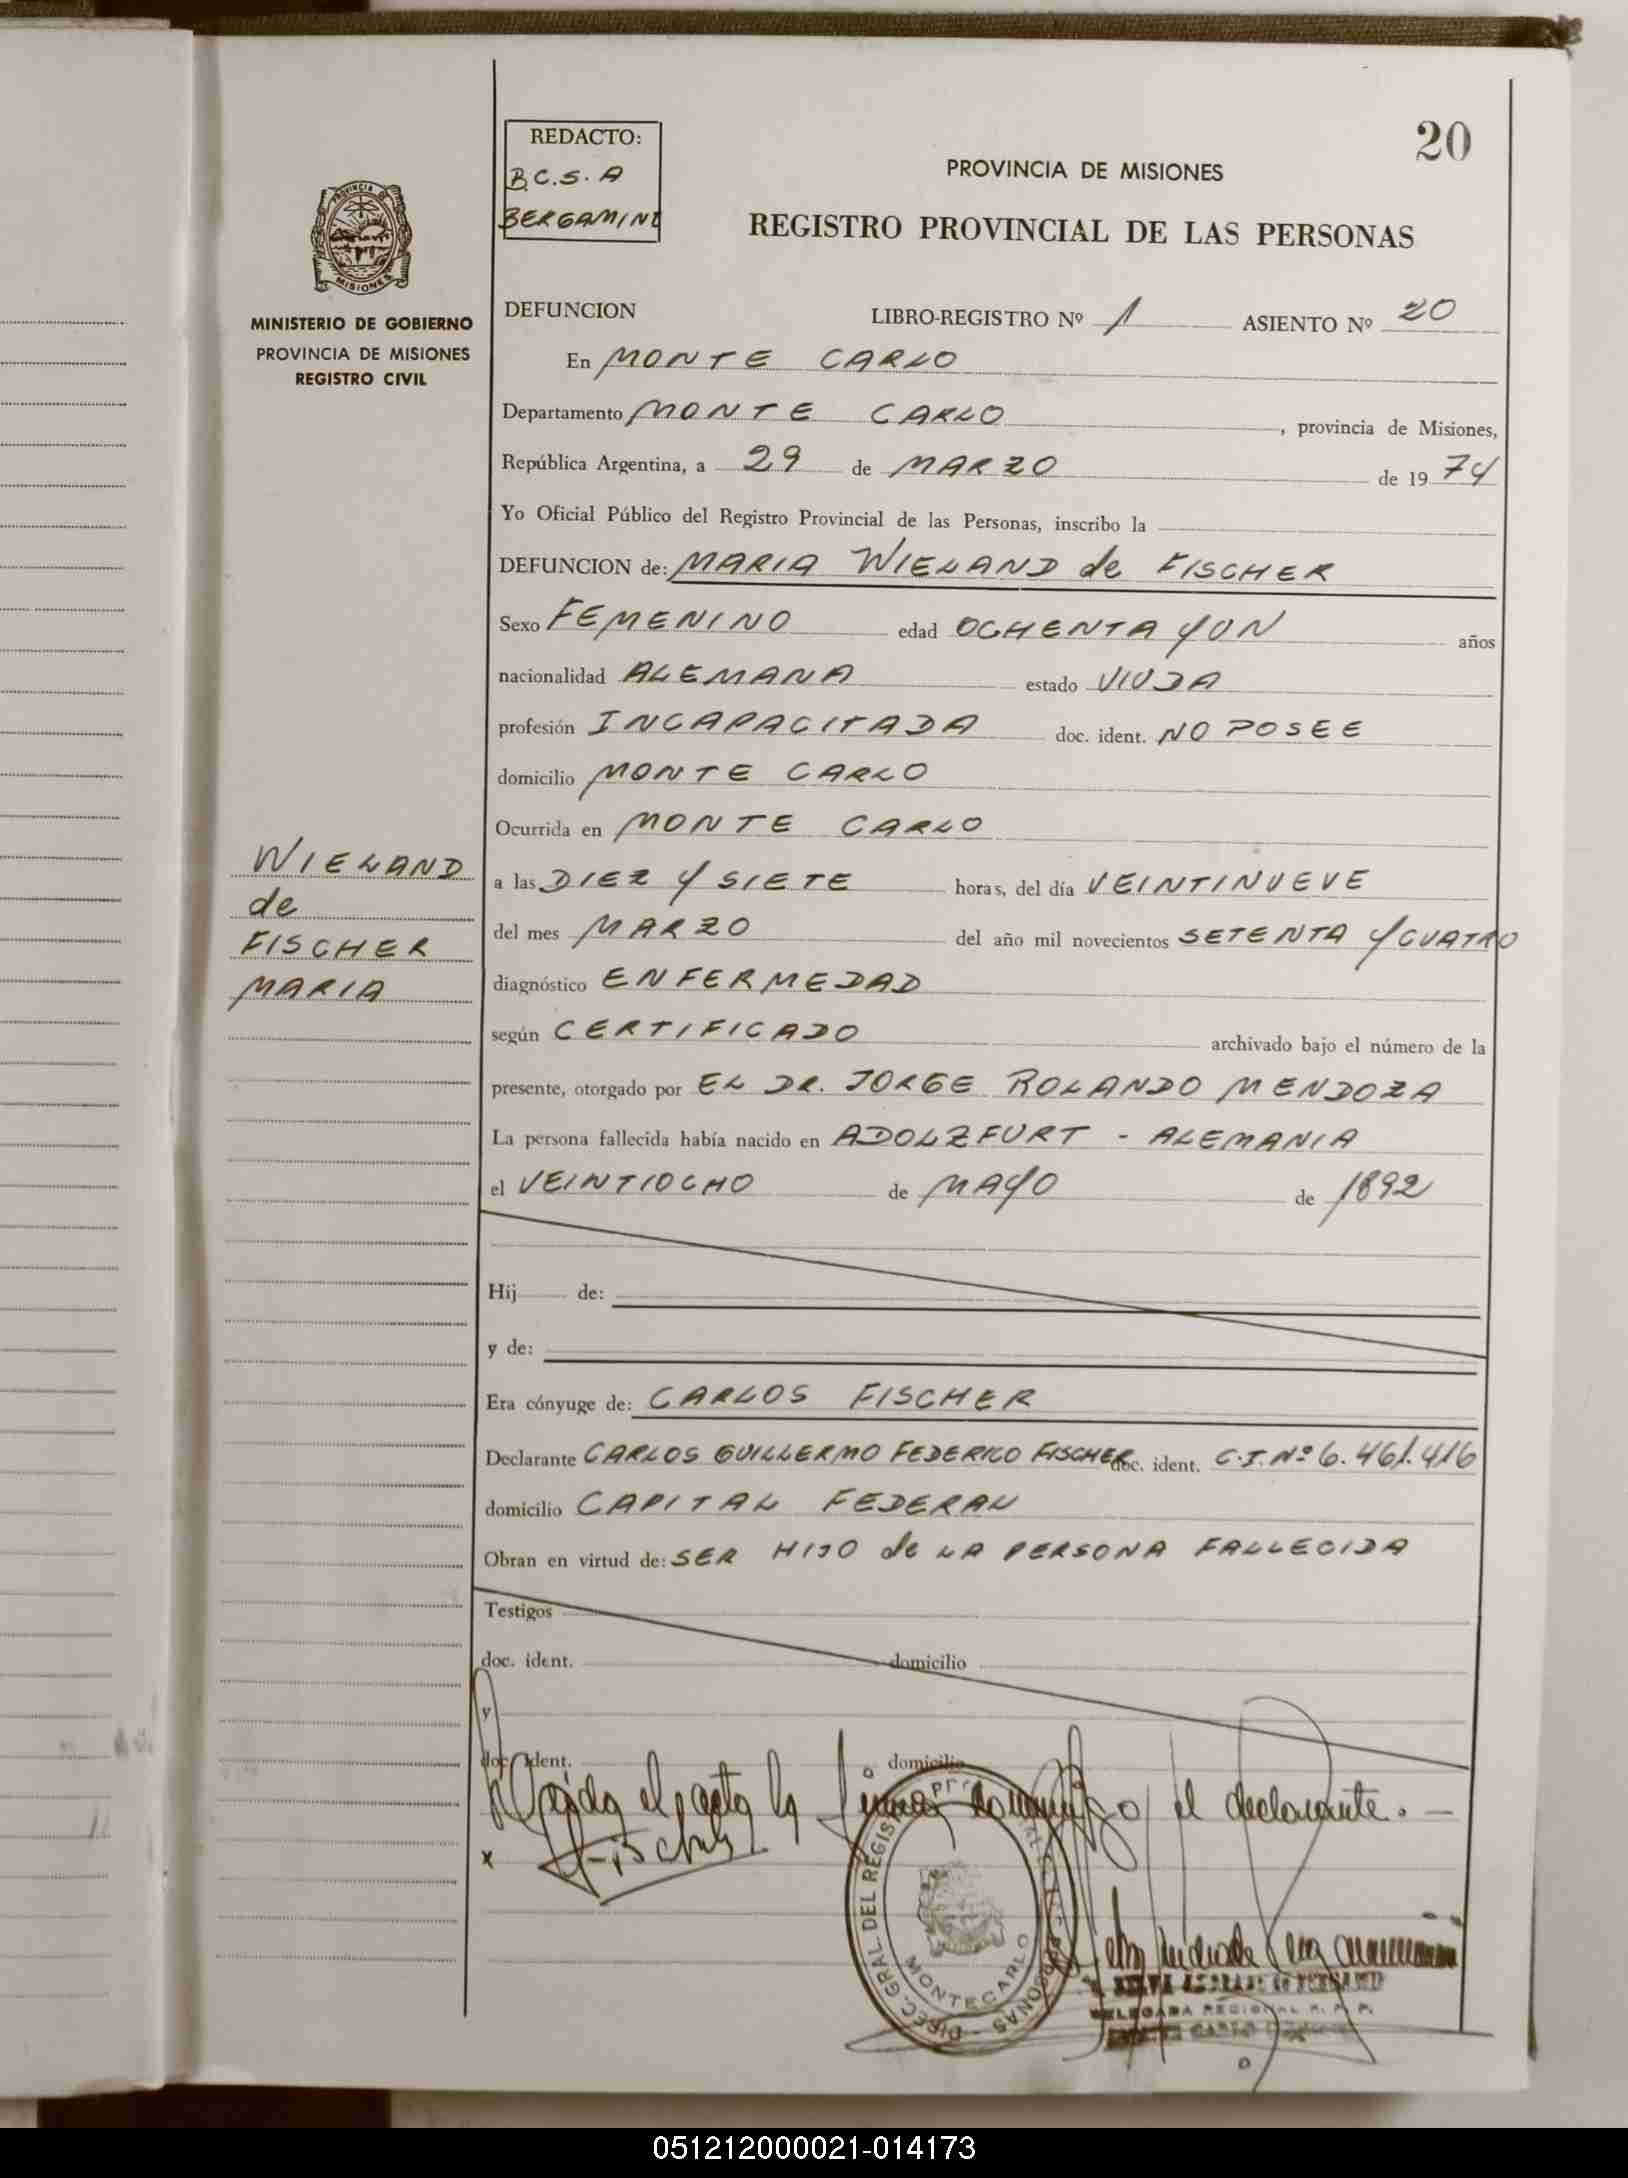 20
REDACTO:
B.C.S.A
BERGAMINI
PROVINCIA DE MISIONES
REGISTRO PROVINCIAL DE LAS PERSONAS
PROVINCIA DE
MISIONES
MINISTERIO DE GOBIERNO
PROVINCIA DE MISIONES
REGISTRO CIVIL
DEFUNCION LIBRO-REGISTRO Nº 1 ASIENTO Nº 20
En MONTE CARLO
Departamento MONTE CARLO, provincia de Misiones,
República Argentina, a 29 de MARZO de 1974
Yo Oficial Público del Registro Provincial de las Personas, inscribo la
DEFUNCION de: MARIA WIELAND de FISCHER
Sexo FEMENINO edad OCHENTA Y UN años
nacionalidad ALEMANA estado VIUDA
profesión INCAPACITADA doc. ident. NO POSEE
domicilio MONTE CARLO
Ocurrida en MONTE CARLO
WIELAND
de
FISCHER
MARIA
a las DIEZ Y SIETE horas, del día VEINTINUEVE
del mes MARZO del año mil novecientos SETENTA Y CUATRO
diagnóstico ENFERMEDAD
según CERTIFICADO archivado bajo el número de la
presente, otorgado por EL DR. JORGE ROLANDO MENDOZA
La persona fallecida había nacido en ADOLZFURT - ALEMANIA
el VEINTIOCHO de MAYO de 1892
Hij de:
y de:
Era cónyuge de: CARLOS FISCHER
Declarante CARLOS GUILLERMO FEDERICO FISCHER doc. ident. C.I. Nº 6.461.416
domicilio CAPITAL FEDERAL
Obran en virtud de: SER HIJO de LA PERSONA FALLECIDA
Testigos
doc. ident. domicilio
y
doc. ident. domicilio
el acta la firma conmigo el declarante. —
x Fischer
DIREC. GRAL. DEL REGISTRO PERSONAS
MONTECARLO
DELEGADA REGIONAL R. P. P.
051212000021-014173